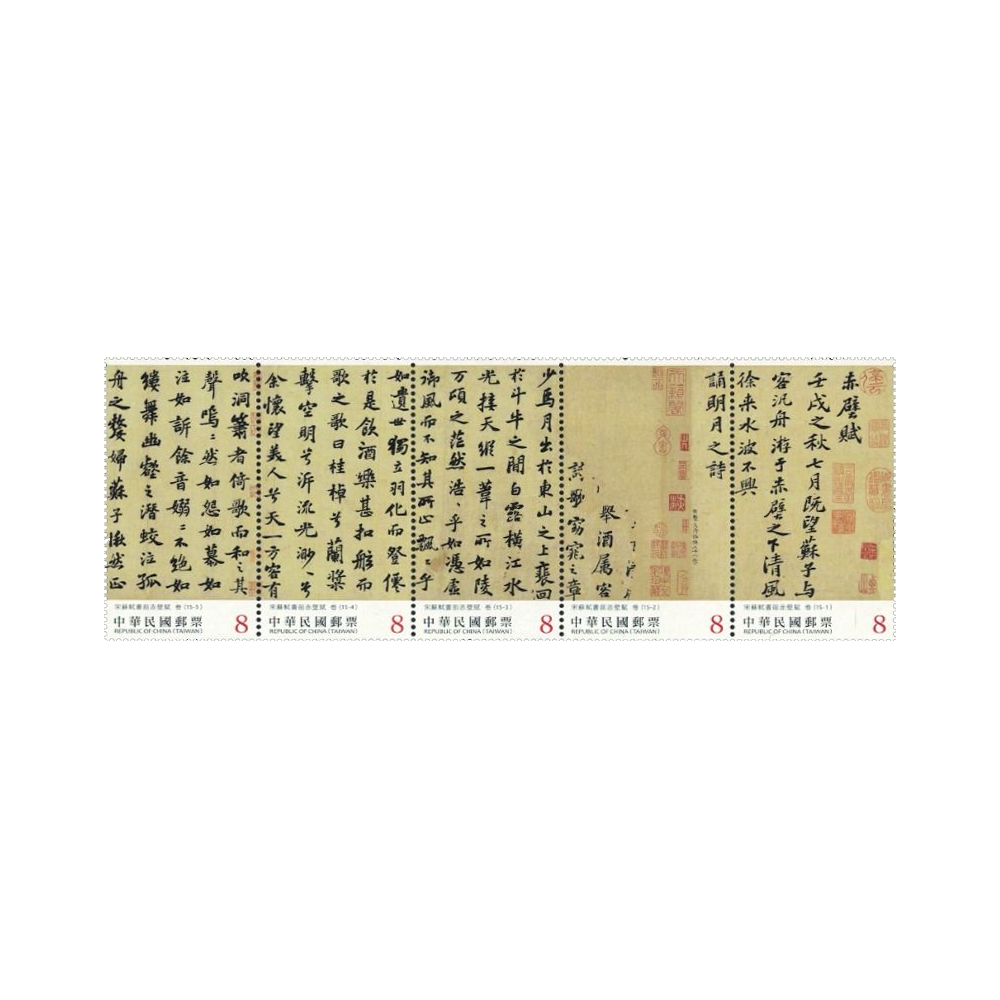 赤壁賦
壬戌之秋七月既望蘇子與
客汎舟游于赤壁之下清風
徐來水波不興
誦明月之詩
舉酒属客
歌窈窕之章
少焉月出於東山之上裴回
於斗牛之間白露橫江水
光接天縱一葦之所如陵
万頃之茫然浩〻乎如憑虛
御風而不知其所止飄〻乎
如遺世獨立羽化而登僊
於是飲酒樂甚扣舷而
歌之歌曰桂棹兮蘭槳
擊空明兮泝流光渺〻兮
余懷望美人兮天一方客有
吹洞簫者倚歌而和之其
聲嗚〻然如怨如慕如
泣如訴餘音嫋〻不絕如
縷舞幽壑之潛蛟泣孤
舟之嫠婦蘇子愀然正
宋蘇軾書前赤壁賦 卷 (15-5)
中華民國郵票 8
REPUBLIC OF CHINA (TAIWAN)
宋蘇軾書前赤壁賦 卷 (15-4)
中華民國郵票 8
REPUBLIC OF CHINA (TAIWAN)
宋蘇軾書前赤壁賦 卷 (15-3)
中華民國郵票 8
REPUBLIC OF CHINA (TAIWAN)
宋蘇軾書前赤壁賦 卷 (15-2)
中華民國郵票 8
REPUBLIC OF CHINA (TAIWAN)
宋蘇軾書前赤壁賦 卷 (15-1)
中華民國郵票 8
REPUBLIC OF CHINA (TAIWAN)